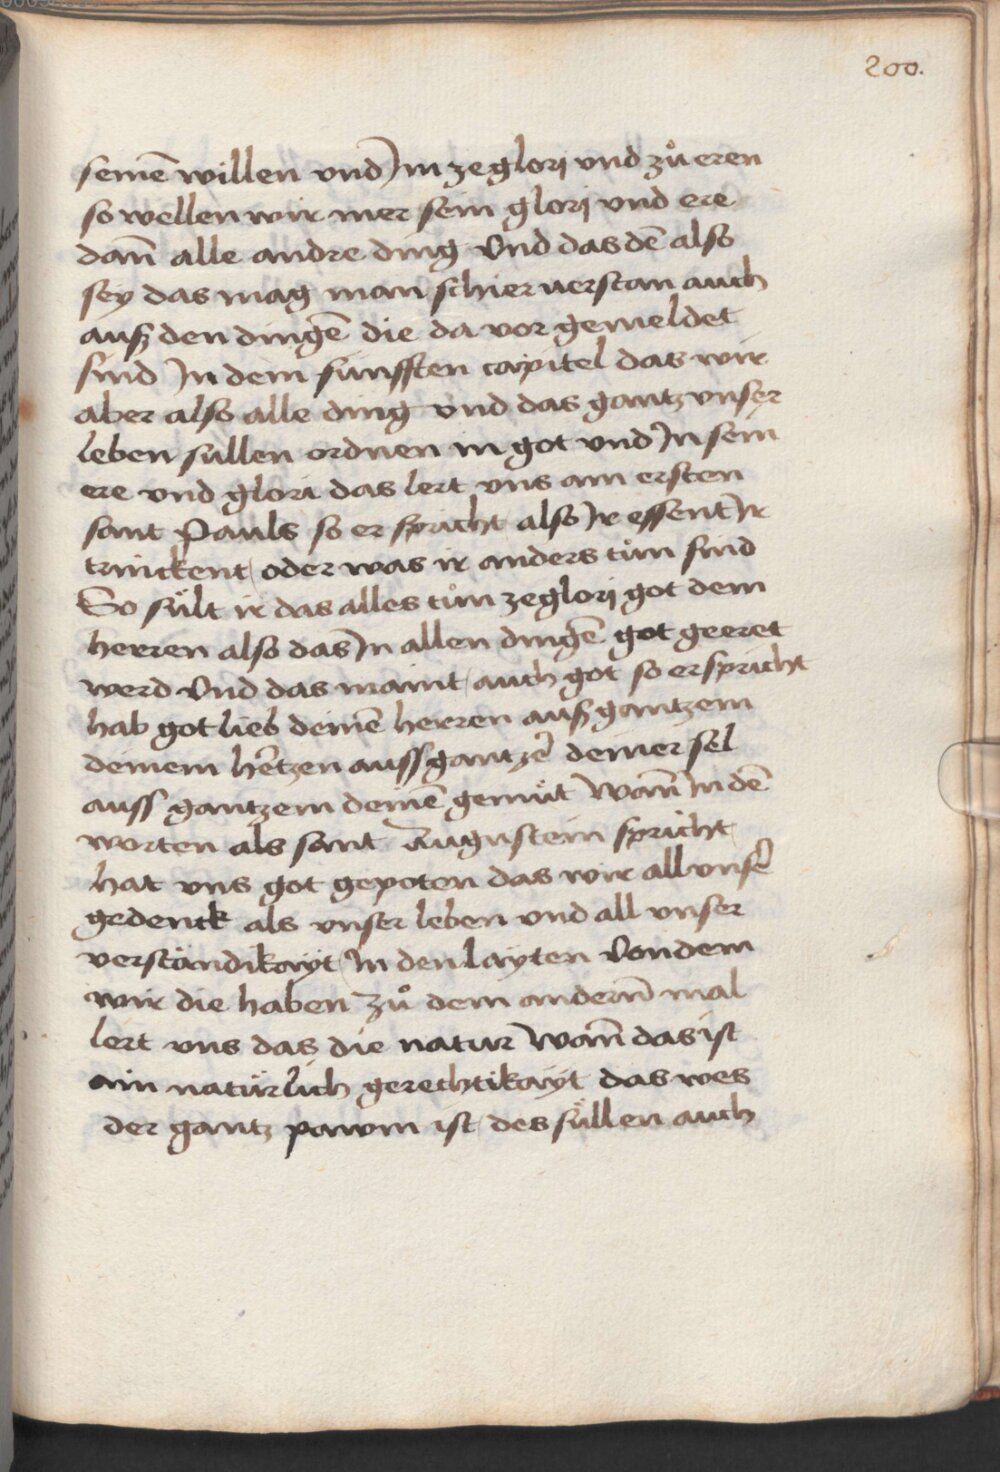 200.
seinē willen vnd Jm ze glorj vnd zů eren
so wellen wir mer sein glorj vnd ere
dan̄ alle andre ding Vnd das dē also
sey das mag man schier verstan auch
auß den dingē die da vor gemeldet
sind Jn dem fünfften capitel das wir
aber also alle ding vnd das gantz vnser
leben sullen ordnen in got vnd Jn sein
ere vnd glori das lert vns am ersten
sant Pauls so er spricht also Jr essent Jr
trinckent / oder was ir anders tůn sind
So sült ir das alles tůn ze glorj got dem
herren also das Jn allen dingē got geeret
werd Vnd das maint / auch got so er spricht
hab got lieb deinē herren auß gantzem
deinem hertzen auss gantzer deiner sel
auss gantzem deinē gemüt Wan̄ Jn dē
worten als sant Augustein spricht
hat vns got gepoten das wir all vnser
gedenck als vnser leben vnd all vnser
verständikayt / Jn den layten Von dem
wir die haben Zů dem andern̄ mal
lert vns das die natur Wan̄ das ist
ain natürlich gerechtikayt das wes
der gantz pawm ist / des süllen auch